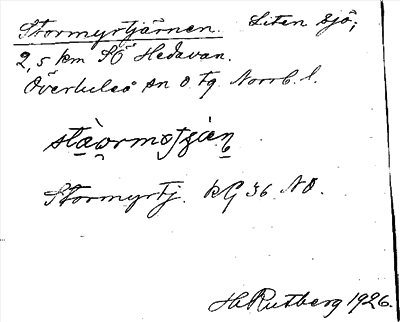 Stormyrtjärnen. Liten sjö;
2,5 km SÖ Hedavan.
Överluleå sn o tg Norrb. l.
Stormyrtj. kG 36 NO.
H. Rutberg 1926.